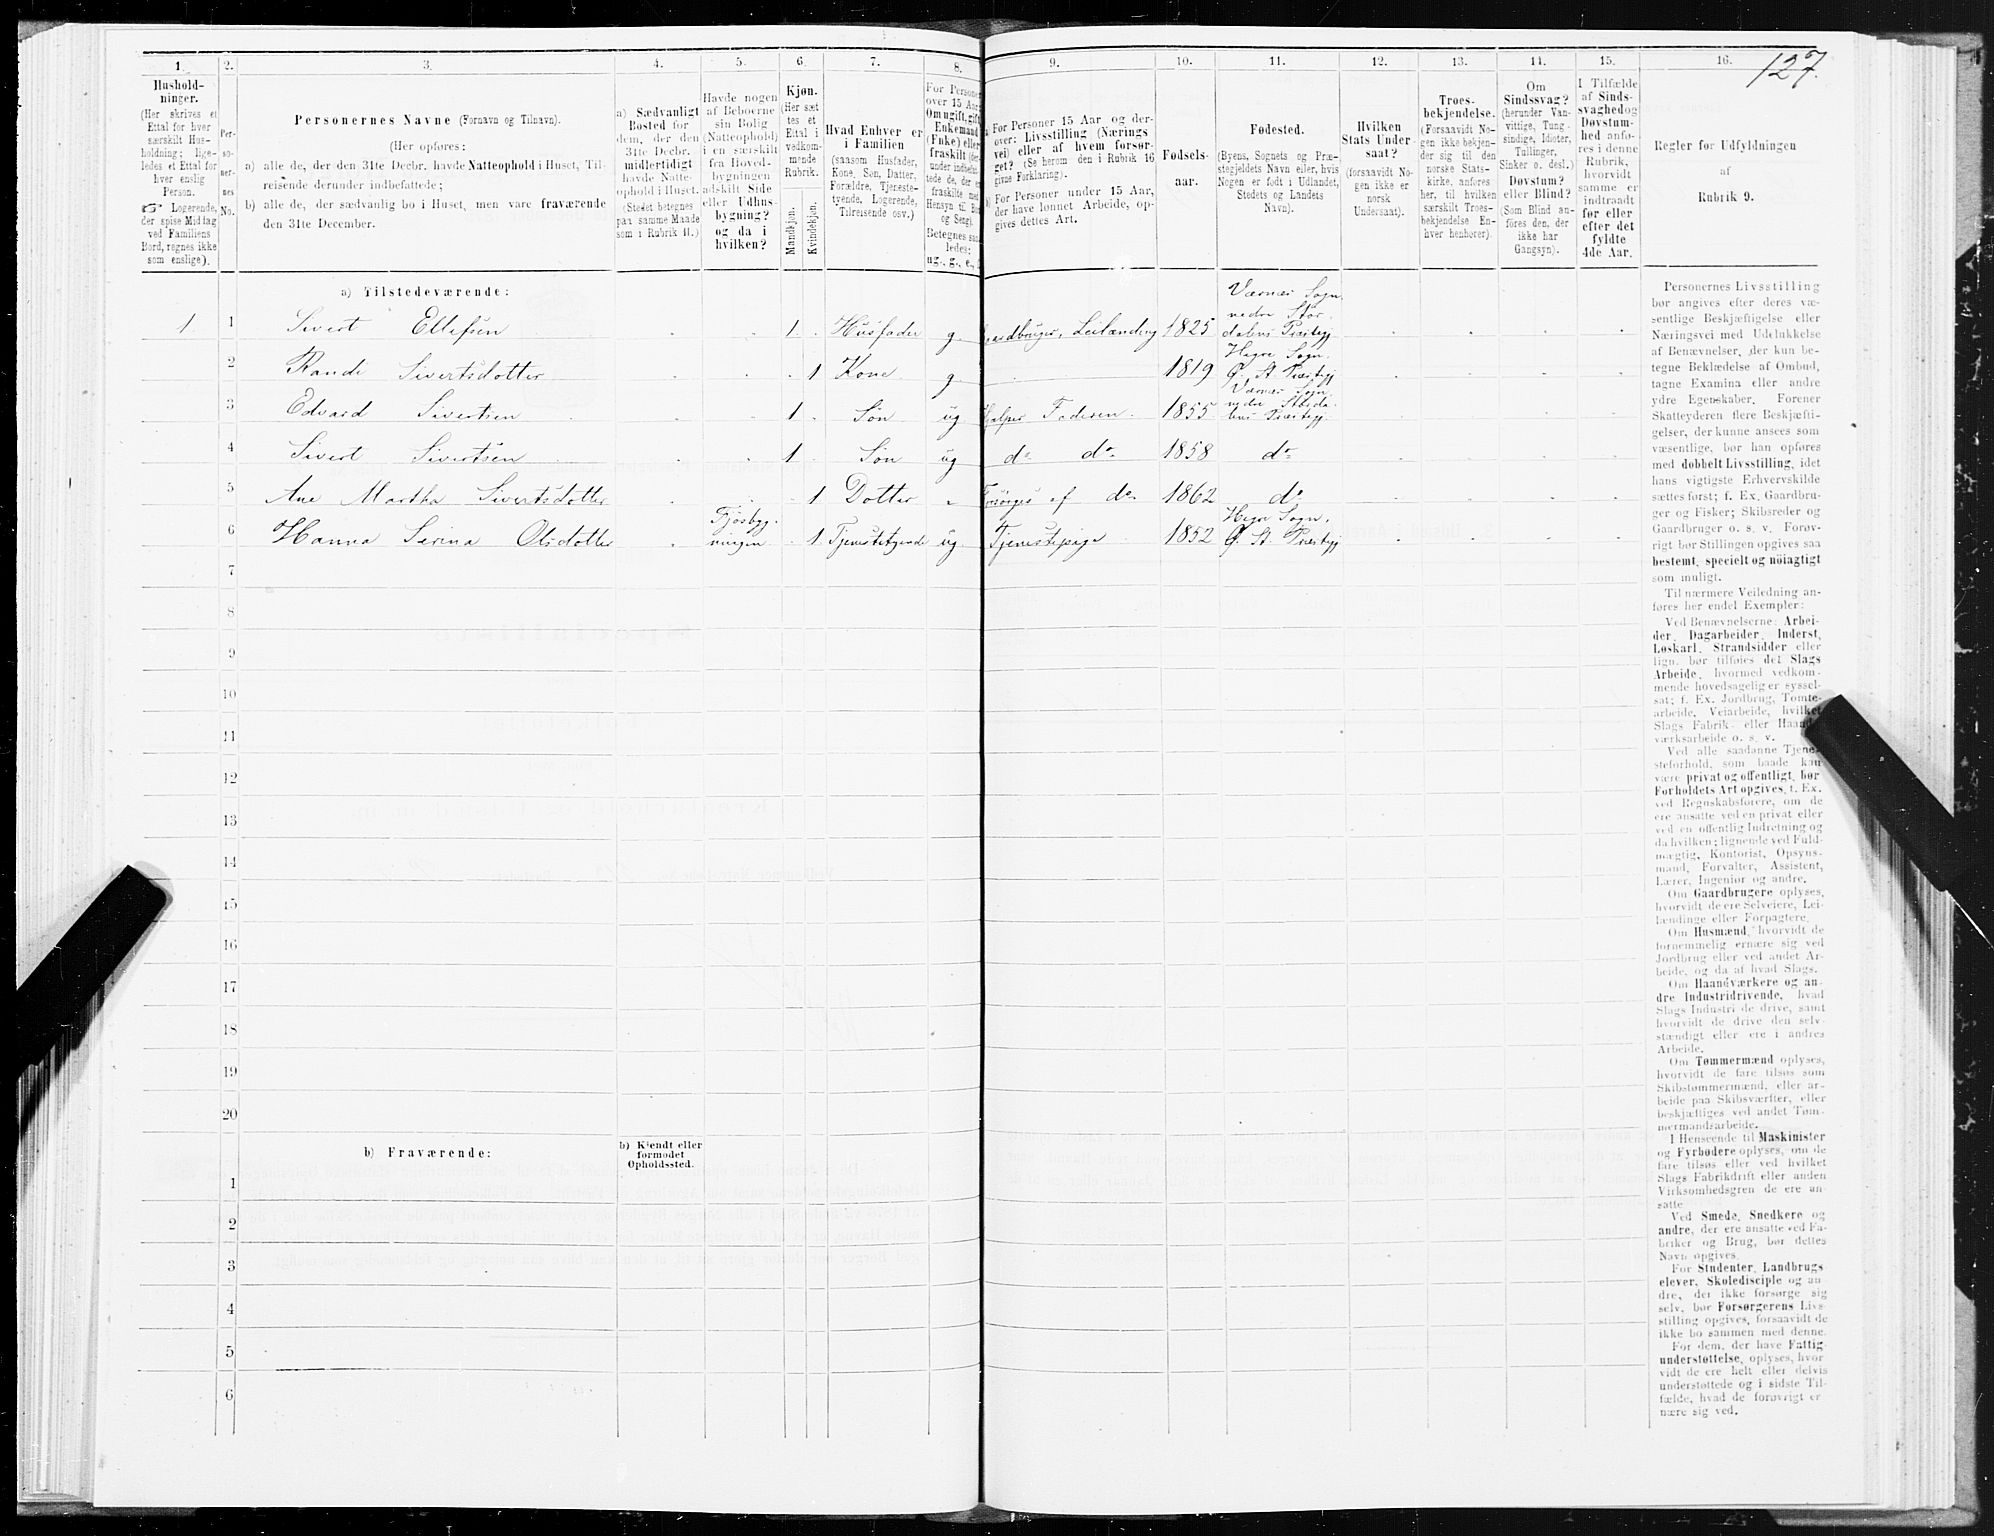 127.
1. 2. 3. 4. 5. 6. 7. 8. 9. 10. 11. 12. 13. 14. 15. 16.
Hushold-
ninger.
(Her skrives et
Ettal for hver
særskilt Hus-
holdning; lige-
ledes et Ettal for
hver enslig
Person.
☞ Logerende,
der spise Middag
ved Familiens
Bord, regnes ikke
som enslige).
Per-
so-
ner-
nes
No.
Personernes Navne (Fornavn og Tilnavn).
(Her opføres:
a) alle de, der den 31te Decbr. havde Natteophold i Huset, Til-
reisende derunder indbefattede;
b) alle de, der sædvanlig bo i Huset, men vare fraværende
den 31te December.
a) Sædvanligt
Bosted for
dem, der den
31te Decbr.
midlertidigt
havde Natte-
ophold i Huset.
(Stedet betegnes
paa samme Maade
som i Rubrik 11.)
Havde nogen
af Beboerne
sin Bolig
(Natteophold)
i en særskilt
fra Hoved-
bygningen
adskilt Side
eller Udhus-
bygning?
og da i
hvilken?
Kjøn.
(Her sæt-
tes et
Ettal i
vedkom-
mende
Rubrik.
Mandkjøn.
Kvindekjøn.
Hvad Enhver er
i Familien
(saasom Husfader,
Kone, Søn, Datter,
Forældre, Tjeneste-
tyende, Logerende,
Tilreisende osv.)
For Persone
over 15 Aar
Om ugift, gift
Enkemand
(Enke) eller
fraskilt
Betegnes saa-
ledes:
ug., g., e.,
For Personer 15 Aar og der-
over: Livsstilling (Nærings
vei) eller af hvem forsør-
get? (Se herom den i Rubrik 16
givne Forklaring).
b) For Personer under 15 Aar,
der have lønnet Arbeide, op-
gives dettes Art.
Fødsels-
aar.
Fødested.
(Byens, Sognets og Præ-
stegjeldets Navn eller, hvis
Nogen er født i Udlandet,
Stedets og Landets
Navn).
Hvilken
Stats Under-
saat?
(forsaavidt No-
gen ikke er
norsk
Undersaat).
Troes-
bekjendelse.
(Forsaavidt No-
gen ikke bekjen-
der sig til den
norske Stats-
kirke, anføres
her, til hvilken
særskilt Troes-
bekjendelse En-
hver henhører).
Om
Sindssvag?
(herunder Van-
vittige, Tung-
sindige, Idioter,
Tullinger,
Sinker o. desl.)
Døvstum?
eller Blind?
(Som Blind an-
føres den, der
ikke har
Gangsyn).
I Tilfælde
af Sinds-
svaghed og
Døvstum-
hed anfø-
res i denne
Rubrik,
hvorvidt
samme er
indtraadt
før eller
efter det
fyldte
4de Aar.
Regler for Udfyldningen
af
Rubrik 9.
a) Tilstedeværende:
1 1 Sivert Ellefsen 1 Husfader g. Gaardbruger, Leilænding 1825 Værnes Sogn, nedre Stør- dalens Præstegj
2 Rande Sivertsdotter 1 Kone g. 1819 Hegre Sogn, Ø. St. Præstegj
3 Edvard Sivertsen 1 Søn ug Hjelper Faderen 1855 Værnes Sogn nedre Størda- lens Præstegj.
4 Sivert Sivertsen 1 Søn ug do do 1858 do
5 Ane Martha Sivertsdotter 1 Dotter Forsørges af do 1862 do
6 Hanna Sirina Olsdotter Fjøsbyg- ningen 1 Tjenestetyende ug Tjenestepige 1852 Hegre Sogn, Ø. St. Præstegj
7
8
9
10
11
12
13
14
15
16
17
18
19
20
b) Fraværende:
b) Kjendt eller
formodet
Opholdssted.
1
2
3
4
5
6
Personernes Livsstilling
bør angives efter deres væ-
sentlige Beskjæftigelse eller
Næringsvei med Udelukkelse
af Benævnelser, der kun be-
tegne Beklædelse af Ombud,
tagne Examina eller andre
ydre Egenskaber. Forener
Skatteyderen flere Beskjæfti-
gelser, der kunne ansees som
væsentlige, bør han opføres
med dobbelt Livsstilling, idet
hans vigtigste Erhvervskilde
sættes først; f. Ex. Gaardbru-
ger og Fisker; Skibsreder og
Gaardbruger o. s. v. Forøv-
rigt bør Stillingen opgives saa
bestemt, specielt og nøiagtigt
som muligt.
Til nærmere Veiledning an-
føres her endel Exempler:
Ved Benævnelserne: Arbei-
der, Dagarbeider, Inderst,
Løskarl, Strandsidder eller
lign. bør tilføies det Slags
Arbeide, hvormed vedkom-
mende hovedsagelig er syssel-
sat; f. Ex. Jordbrug, Tomte-
arbeide, Veiarbeide, hvilket
Slags Fabrik- eller Haand-
værksarbeide o. s. v.
Ved alle saadanne Tjene-
steforhold, som baade kan
være privat og offentligt, bør
Forholdets Art opgives, f. Ex.
ved Regnskabsførere, om de
ere ansatte ved en privat eller
ved en offentlig Indretning og
da hvilken; lignende ved Fuld-
mægtig, Kontorist, Opsyns-
mand, Forvalter, Assistent,
Lærer, Ingeniør og andre.
Om Gaardbrugere oplyses,
hvorvidt de ere Selveiere, Lei-
lændinge eller Forpagtere.
Om Husmænd, hvorvidt de
fornemmelig ernære sig ved
Jordbrug eller ved andet Ar-
beide, og da af hvad Slags.
Om Haandværkere og an-
dre Industridrivende, hvad
Slags Industri de drive, samt
hvorvidt de drive den selv-
stændigt eller ere i andres
Arbeide.
Om Tømmermænd oplyses,
hvorvidt de fare tilsøs som
Skibstømmermænd, eller ar-
beide paa Skibsværfter, eller
beskjæftiges ved andet Tøm-
mermandsarbeide.
I Henseende til Maskinister
og Fyrbødere oplyses, om de
fare tilsøs eller ved hvilket
Slags Fabrikdrift eller anden
Virksomhedsgren de ere an-
satte
Ved Smede, Snedkere og
andre, der ere ansatte ved Fa-
briker og Brug, bør dettes
Navn opgives.
For Studenter, Landbrugs-
elever, Skoledisciple og an-
dre, der ikke forsørge sig
selv, bør Forsørgerens Livs-
stilling opgives, forsaavidt de
ikke bo sammen med denne.
For dem, der have Fattig-
understøttelse, oplyses, hvor-
vidt de ere helt eller delvis
understøttede og i sidste Til-
fælde, hvad de forøvrigt er-
nære sig ved.